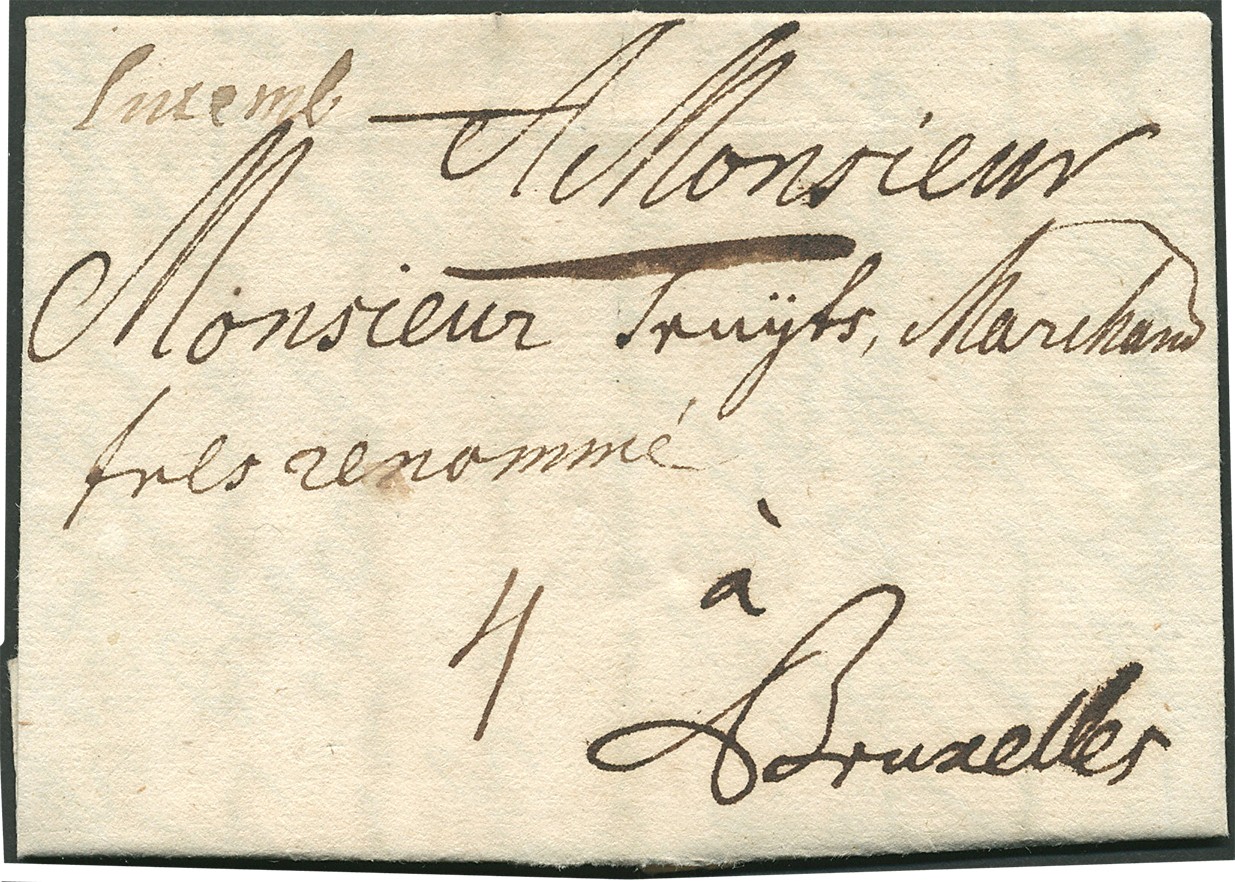 Luxemb
A Monsieur
Monsieur Truÿts, Marchand
tres renommé
4
à
Bruxelles